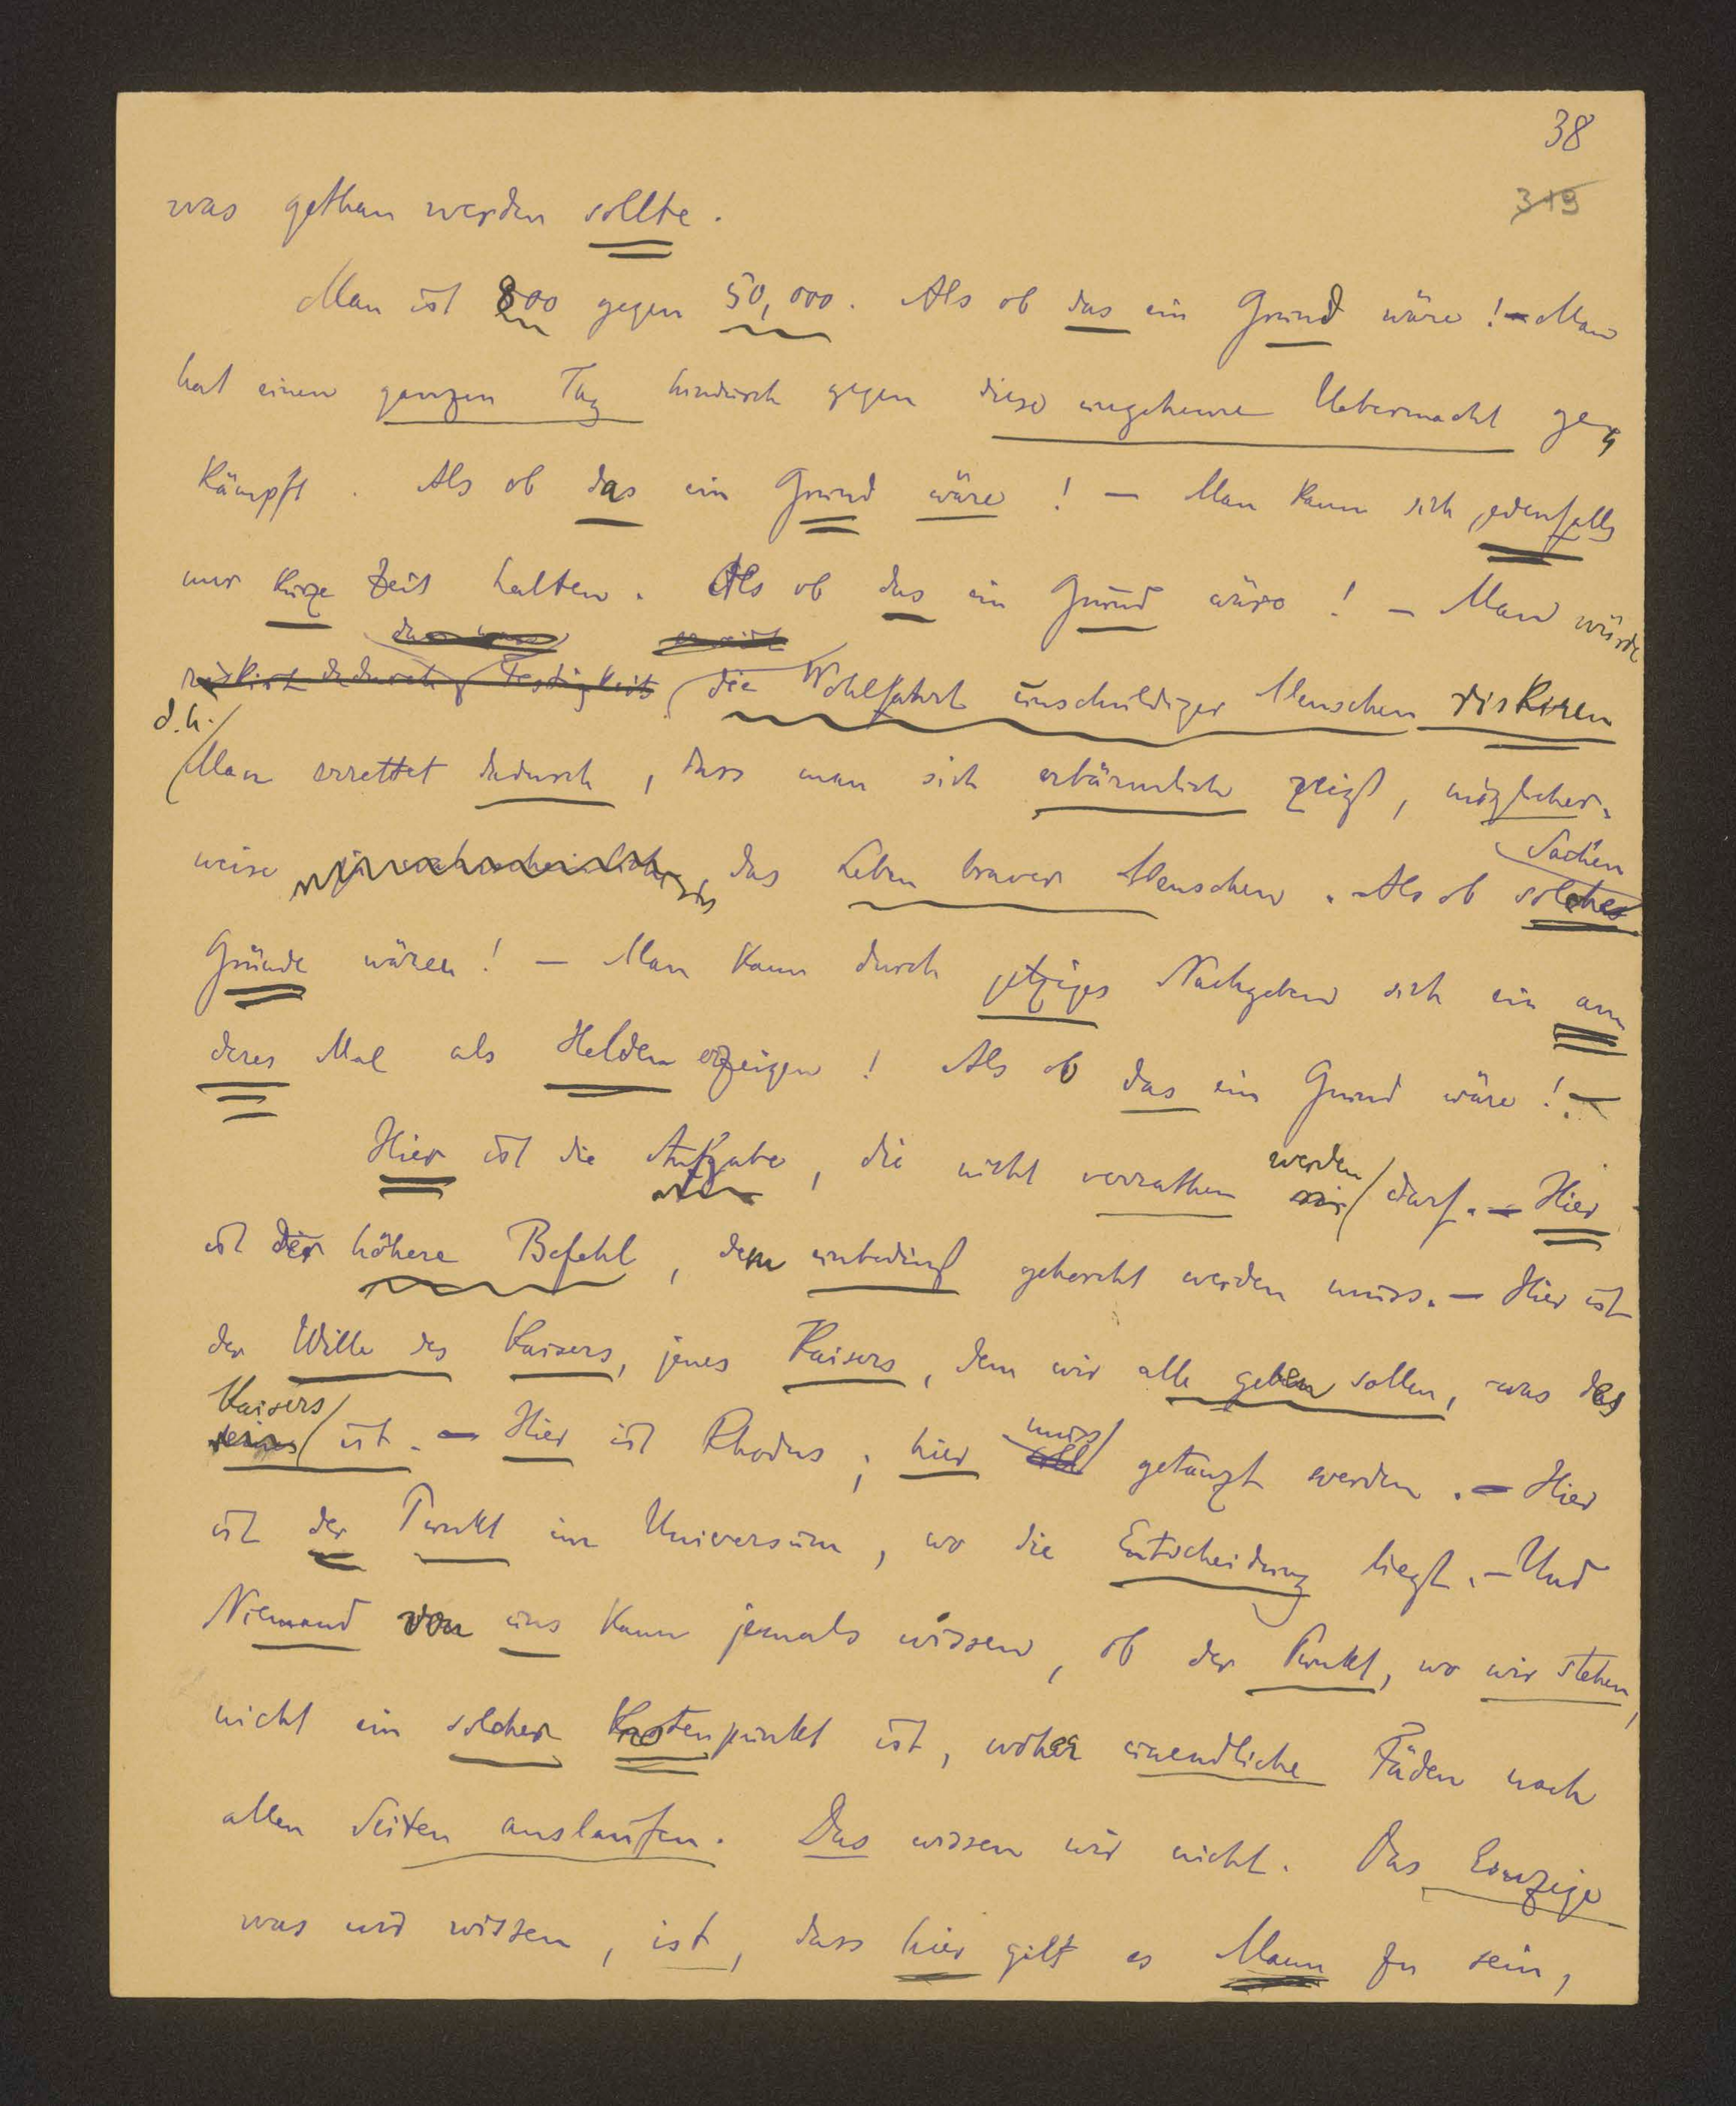 38
319
was gethan werden sollte.
Man ist 800 gegen 50,000. Als ob das ein Grund wäre! - Man
hat einen ganzen Tag hindurch gegen diese ungeheure Uebermacht ge-
kämpft. Als ob das ein Grund wäre! - Man kann sich jedenfalls
nur kurze Zeit halten. Als ob das ein Grund wäre! - Man würde
riskirt dadurch Festigkeit die Wohlfahrt unschuldiger Menschen riskiren
d.h.
Man errettet dadurch, dass man sich erbärmlich zeigt, möglicher-
weise ja wahrscheinlicher das Leben braver Menschen. Als ob solche
Sachen
Gründe wären! - Man kann durch jetziges Nachgeben sich ein an-
deres Mal als Helden erzeigen! Als ob das ein Grund wäre! -
Hier ist die Aufgabe, die nicht verrathen werden darf. - Hier
ist der höhere Befehl, dem unbedingt gehorcht werden muss. - Hier ist
der Wille des Kaisers, jenes Kaisers, dem wir alle geben sollen, was des
Kaisers
seines ist. - Hier ist Rhodus; hier muss getanzt werden. - Hier
ist der Punkt im Universum, wo die Entscheidung liegt. - Und
Niemand von uns kann jemals wissen, ob der Punkt, wo wir stehen,
nicht ein solcher Knotenpunkt ist, woher unendliche Fäden nach
allen Seiten auslaufen. Das wissen wir nicht. Das Einzige
was wir wissen, ist, dass hier gilt es Mann zu sein,